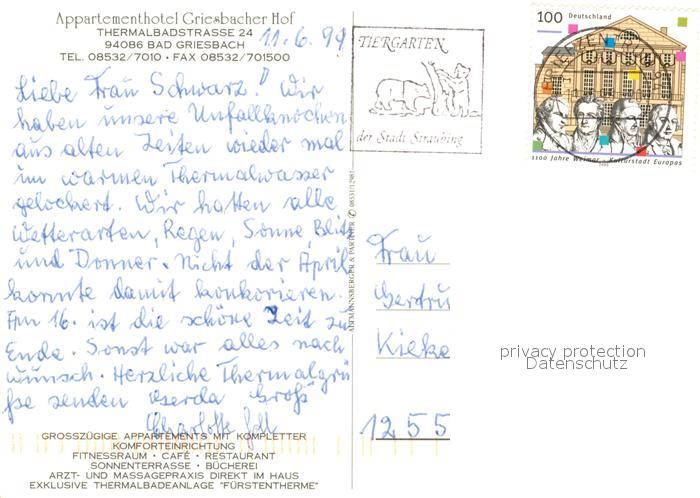 Appartementhotel Griesbacher Hof
THERMALBADSTRASSE 24
94086 BAD GRIESBACH
TEL. 08532/7010 · FAX 08532/701500
11.6.99
Liebe Frau Schwarz! Wir
haben unsere Unfallknochen
aus alten Zeiten wieder mal
im warmen Thermalwasser
gelockert. Wir hatten alle
Wetterarten, Regen, Sonne Blitz
und Donner. Nicht der April
konnte damit konkorieren.
Am 16. ist die schöne Zeit zu
Ende. Sonst war alles nach
wunsch. Herzliche Thermalgrü
ße senden Gerda Groß
Charlotte
GROSSZÜGIGE APPARTEMENTS MIT KOMPLETTER
KOMFORTEINRICHTUNG
FITNESSRAUM · CAFÉ · RESTAURANT
SONNENTERRASSE · BÜCHEREI
ARZT- UND MASSAGEPRAXIS DIREKT IM HAUS
EXKLUSIVE THERMALBADEANLAGE "FÜRSTENTHERME"
ALTMANNSBERGER & PARTNER
TIERGARTEN
der Stadt Straubing
100 Deutschland
1100 Jahre Weimar - Kulturstadt Europas
1999
Frau
Gertru
Kieke
1255
privacy protection
Datenschutz